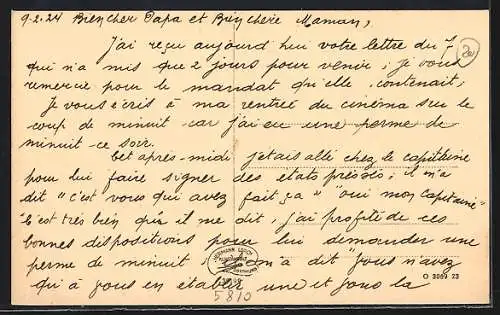 9-2-24 Bien cher Papa et Bien chère Maman,
J'ai reçu aujourd'hui votre lettre du 7
qui n'a mis que 2 jours pour venir; je vous
remercie pour le mandat qu'elle contenait;
Je vous écris à ma rentrée du cinéma sur le
coup de minuit car j'ai eu une perme de
minuit ce soir.
Cet après-midi j'etais allé chez le capitaine
pour lui faire signer des etats pressés; il m'a
dit "c'est vous qui avez fait ça" "oui mon Capitaine"
"C'est très bien" qu'il me dit, j'ai profité de ces
bonnes dispositions pour lui demander une
perme de minuit, il m'a dit "vous n'avez
qu'à vous en etablir une et je vous la
O 3069 23
5810